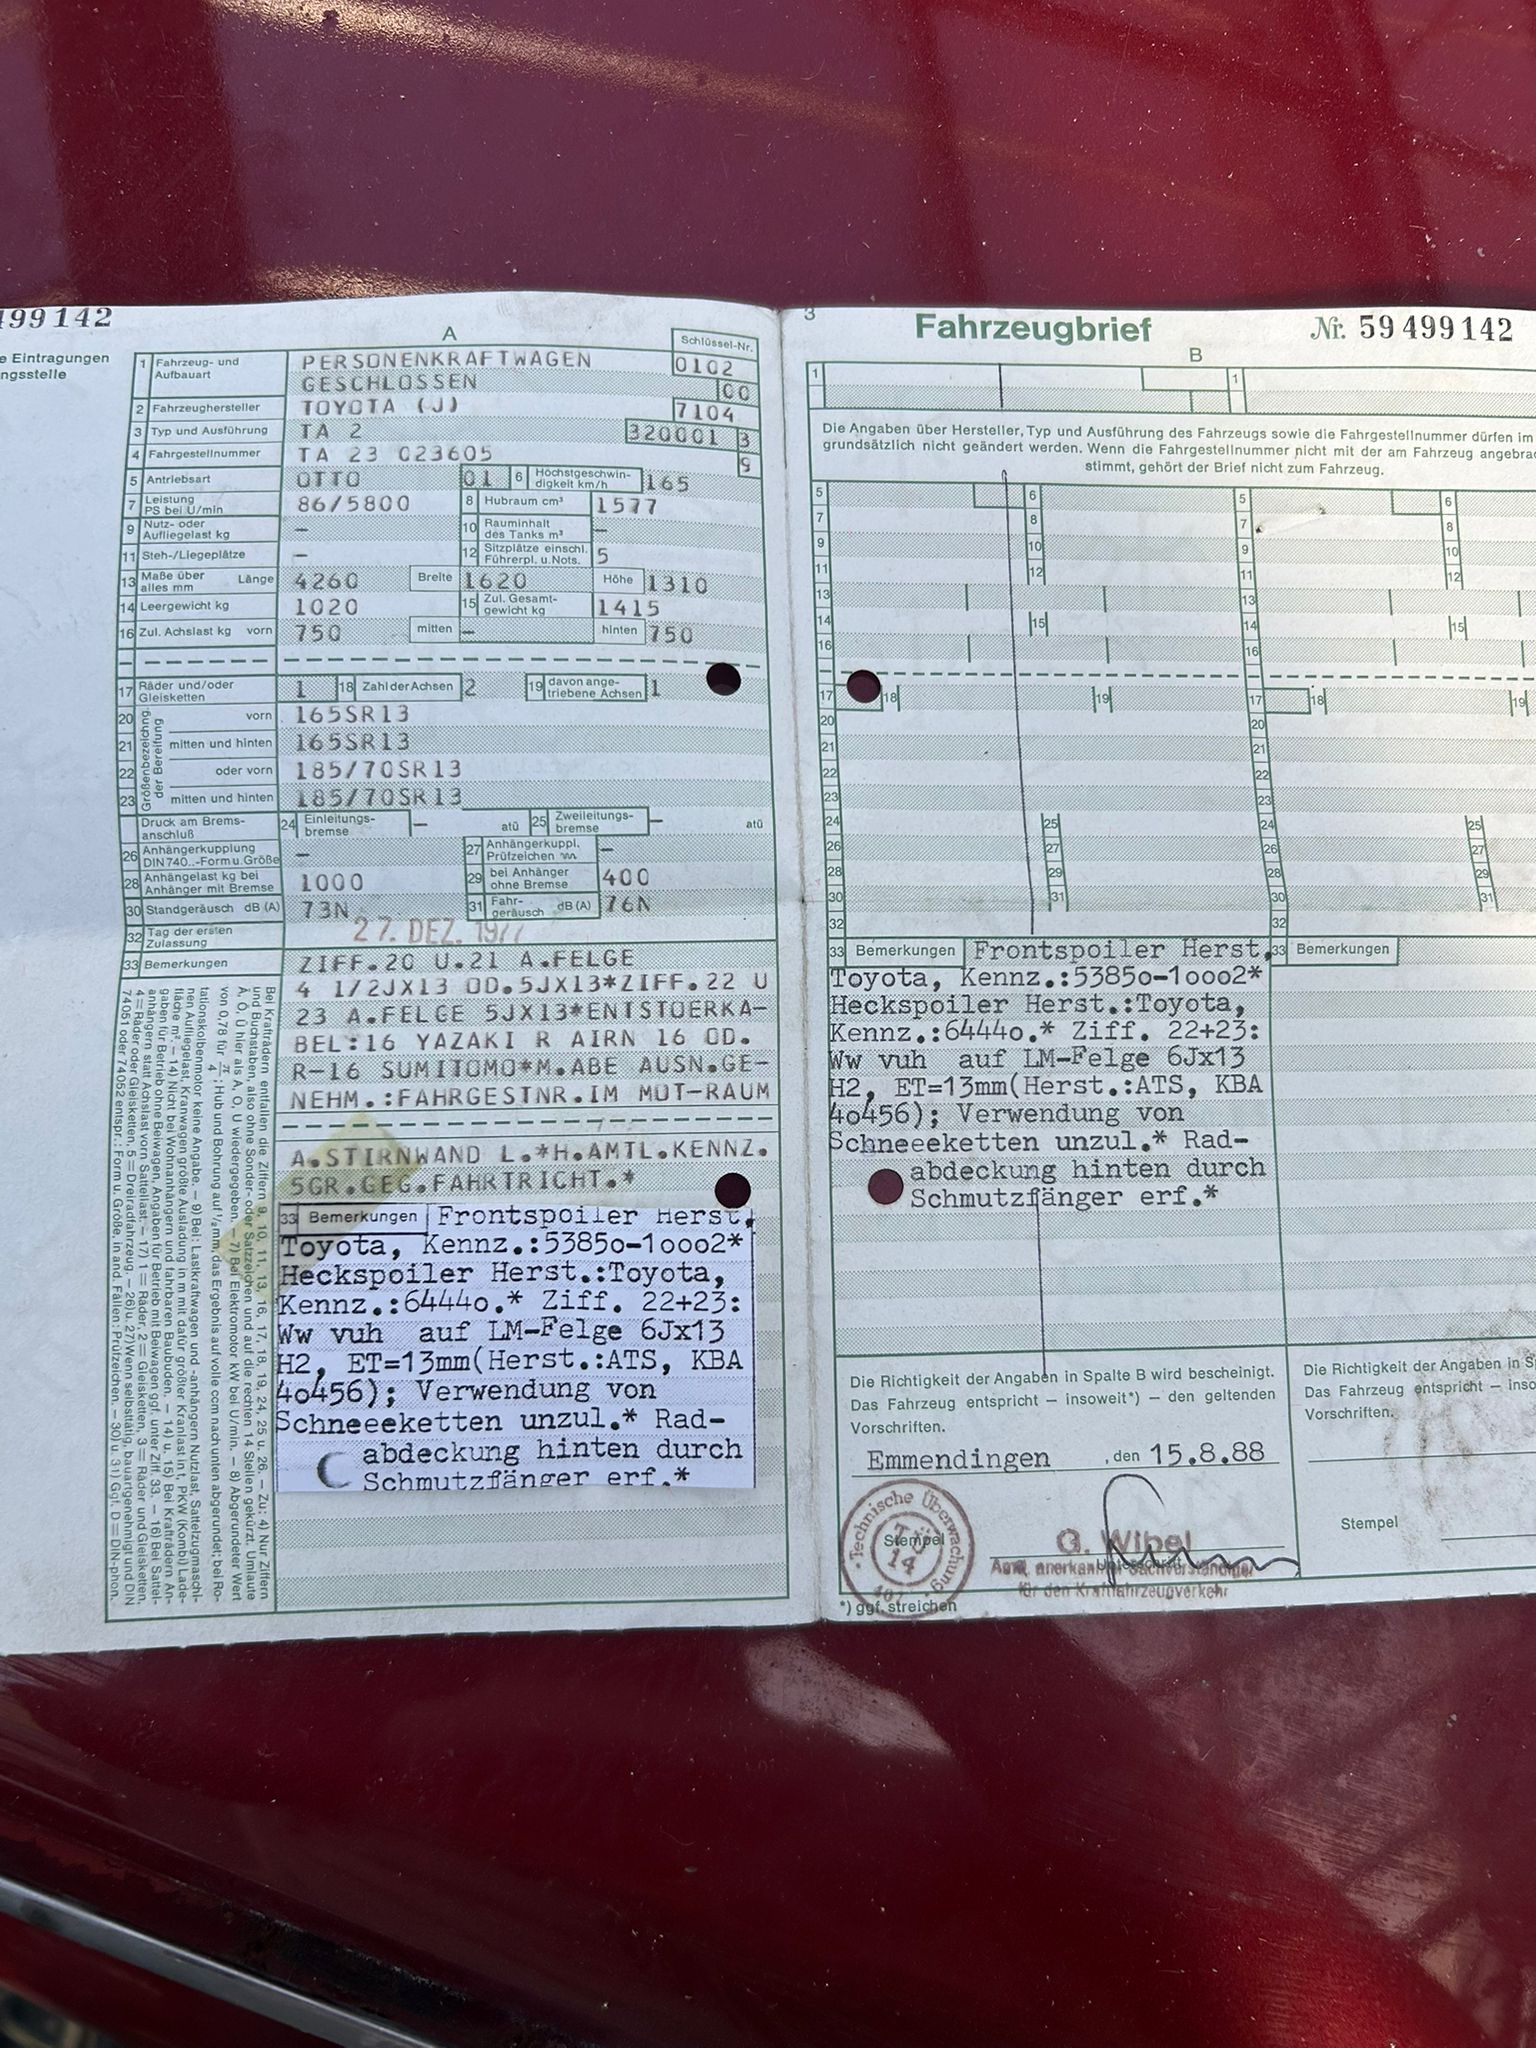 499142
e Eintragungen
ngsstelle
A
Schlüssel-Nr.
1 Fahrzeug- und Aufbauart PERSONENKRAFTWAGEN 0102
GESCHLOSSEN 00
2 Fahrzeughersteller TOYOTA (J) 7104
3 Typ und Ausführung TA 2 320001 3
4 Fahrgestellnummer TA 23 023605 9
5 Antriebsart OTTO 01 6 Höchstgeschwin-digkeit km/h 165
7 Leistung PS bei U/min 86/5800 8 Hubraum cm³ 1577
9 Nutz- oder Aufliegelast kg – 10 Rauminhalt des Tanks m³ –
11 Steh-/Liegeplätze – 12 Sitzplätze einschl. Führerpl. u. Nots. 5
13 Maße über alles mm Länge 4260 Breite 1620 Höhe 1310
14 Leergewicht kg 1020 15 Zul. Gesamt-gewicht kg 1415
16 Zul. Achslast kg vorn 750 mitten – hinten 750
17 Räder und/oder Gleisketten 1 18 Zahl der Achsen 2 19 davon ange-triebene Achsen 1
Größenbezeichnung der Bereifung
20 vorn 165SR13
21 mitten und hinten 165SR13
22 oder vorn 185/70SR13
23 mitten und hinten 185/70SR13
Druck am Brems-anschluß 24 Einleitungs-bremse – atü 25 Zweileitungs-bremse – atü
26 Anhängerkupplung DIN 740..-Form u. Größe – 27 Anhängerkuppl. Prüfzeichen –
28 Anhängelast kg bei Anhänger mit Bremse 1000 29 bei Anhänger ohne Bremse 400
30 Standgeräusch dB (A) 73N 31 Fahr-geräusch dB (A) 76N
32 Tag der ersten Zulassung 27. DEZ. 1977
33 Bemerkungen ZIFF.20 U.21 A.FELGE
4 1/2JX13 OD.5JX13*ZIFF.22 U
23 A.FELGE 5JX13*ENTSTOERKA-
BEL:16 YAZAKI R AIRN 16 OD.
R-16 SUMITOMO*M.ABE AUSN.GE-
NEHM.:FAHRGESTNR.IM MOT-RAUM
A.STIRNWAND L.*H.AMTL.KENNZ.
5GR.GEG.FAHRTRICHT.*
33 Bemerkungen Frontspoiler Herst.
Toyota, Kennz.:5385o-1ooo2*
Heckspoiler Herst.:Toyota,
Kennz.:6444o.* Ziff. 22+23:
Ww vuh auf LM-Felge 6Jx13
H2, ET=13mm(Herst.:ATS, KBA
4o456); Verwendung von
Schneeeketten unzul.* Rad-
abdeckung hinten durch
Schmutzfänger erf.*
Bei Krafträdern entfallen die Ziffern 9, 10, 11, 13, 16, 17, 18, 19, 24, 25 u. 26. – Zu: 4) Nur Ziffern
und Buchstaben, also ohne Sonder- oder Satzzeichen und auf die rechten 14 Stellen gekürzt. Umlaute
Ä, Ö, Ü hier als A, O, U wiedergegeben. – 7) Bei Elektromotor kW bei U/min. – 8) Abgerundeter Wert
3
Fahrzeugbrief
Nr. 59499142
B
1 1
Die Angaben über Hersteller, Typ und Ausführung des Fahrzeugs sowie die Fahrgestellnummer dürfen im
grundsätzlich nicht geändert werden. Wenn die Fahrgestellnummer nicht mit der am Fahrzeug angebra
stimmt, gehört der Brief nicht zum Fahrzeug.
5 6 5 6
7 8 7 8
9 10 9 10
11 12 11 12
13 13
14 15 14 15
16 16
17 18 19 17 18 19
20 20
21 21
22 22
23 23
24 25 24 25
26 27 26 27
28 29 28 29
30 31 30 31
32 32
33 Bemerkungen Frontspoiler Herst. 33 Bemerkungen
Toyota, Kennz.:5385o-1ooo2*
Heckspoiler Herst.:Toyota,
Kennz.:6444o.* Ziff. 22+23:
Ww vuh auf LM-Felge 6Jx13
H2, ET=13mm(Herst.:ATS, KBA
4o456); Verwendung von
Schneeeketten unzul.* Rad-
abdeckung hinten durch
Schmutzfänger erf.*
Die Richtigkeit der Angaben in Spalte B wird bescheinigt.
Das Fahrzeug entspricht – insoweit*) – den geltenden
Vorschriften.
Emmendingen , den 15.8.88
Technische Überwachung
TÜ
14
Stempel
G. Wibel
Amtl. anerkannter Sachverständiger
Unterschrift
für den Kraftfahrzeugverkehr
*) ggf. streichen
Die Richtigkeit der Angaben in Sp
Das Fahrzeug entspricht – inso
Vorschriften.
Stempel